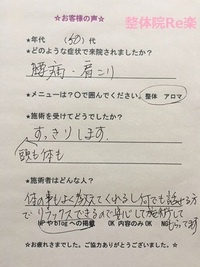 整体院Re楽
★お客様の声★
★年代 (50)代
★どのような症状で来院されましたか?
腰痛・肩こり
★メニューは?○で囲んでください。 整体 アロマ
★施術を受けてどうでしたか?
すっきりします。
頭も体も
★施術者はどんな人?
体の事もよく教えてくれるし何でも話せる方
でリラックスできるので安心して施術して
もらってます
HPやblogへの掲載 OK 内容のみOK NG
★お疲れさまでした。ご協力ありがとうございました。★